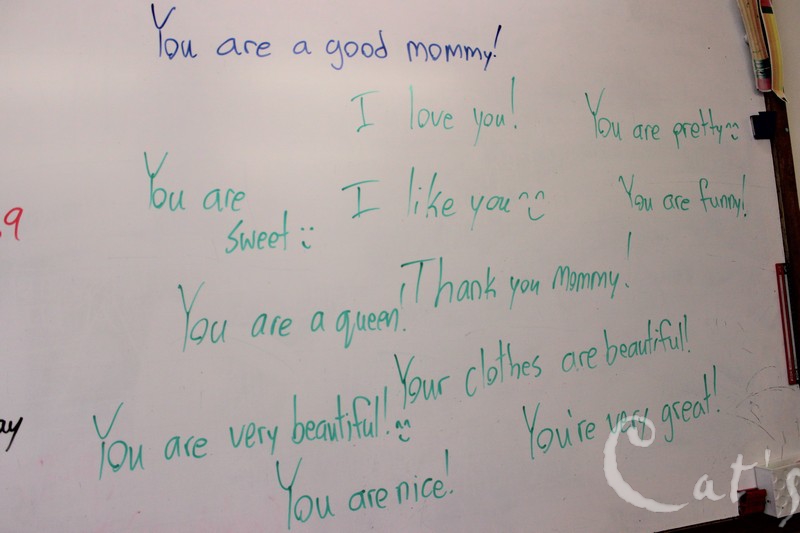 You are a good mommy!
I love you!
You are pretty
You are
sweet :)
I like you
You are funny!
9
¡Thank you mommy!
You are a queen!
Your clothes are beautiful!
You are very beautiful!
You're very great!
ay
You are nice!
Cat's